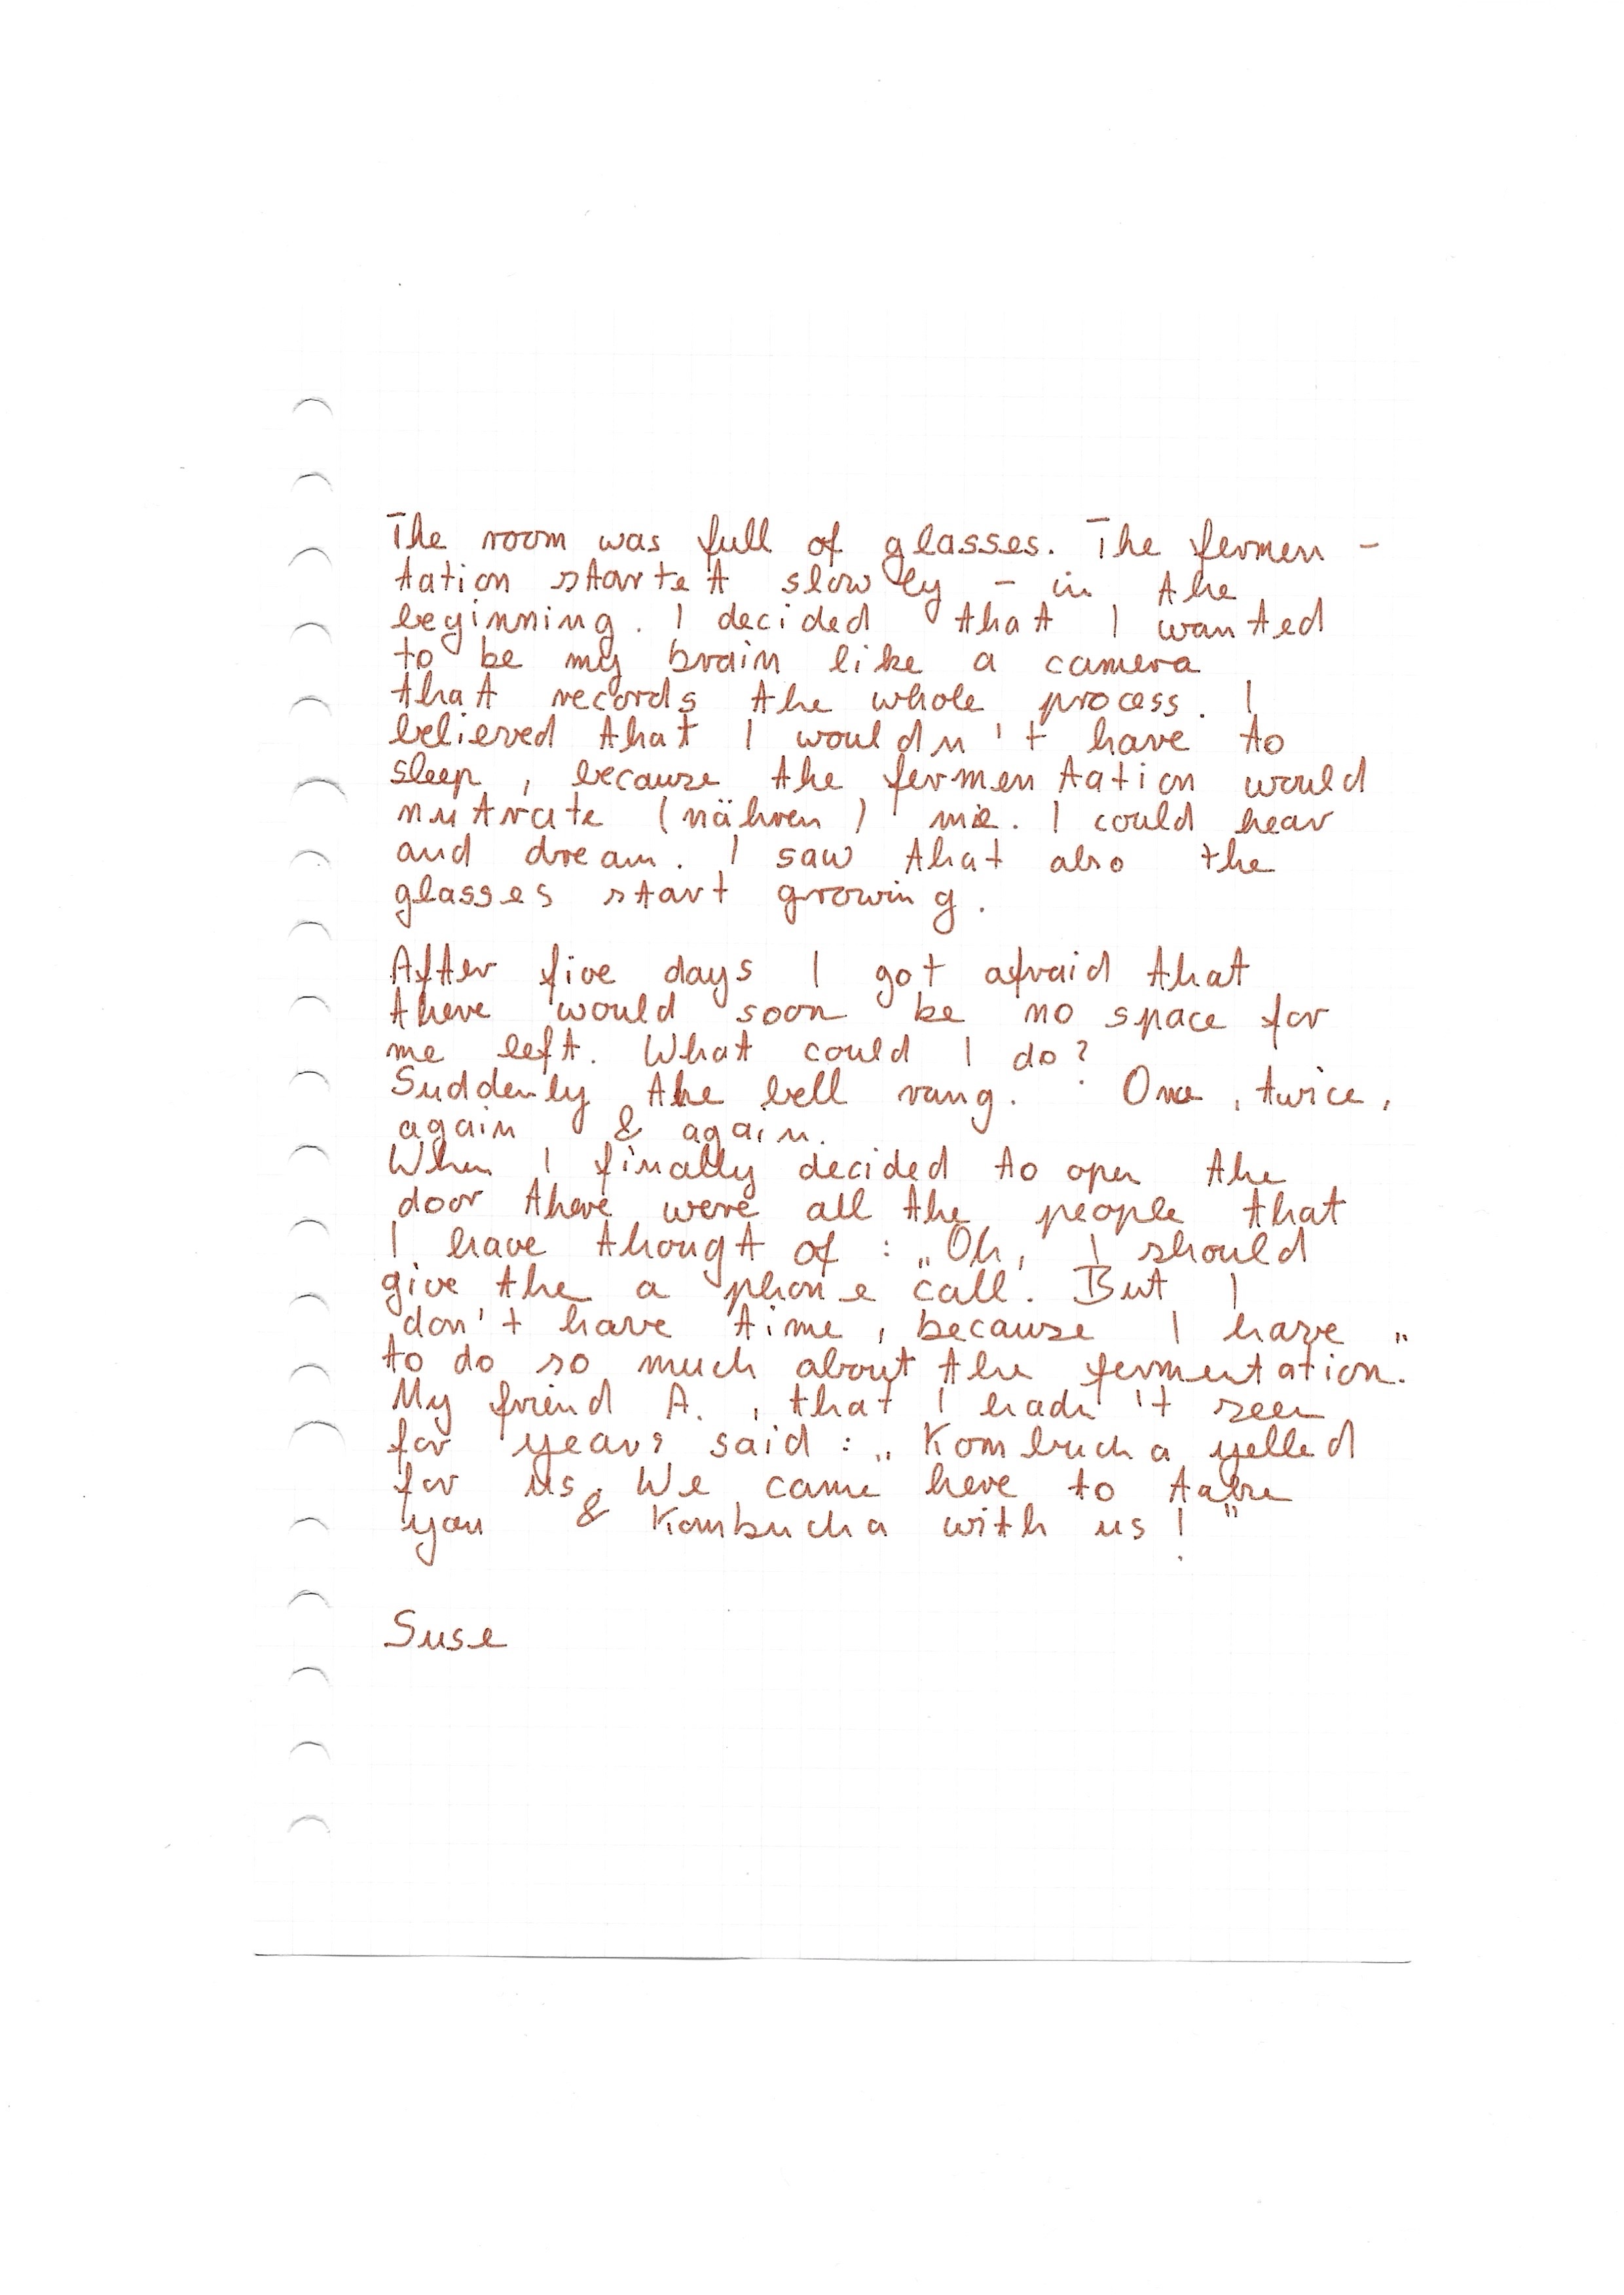 The room was full of glasses. The fermen-
tation startet slowly - in the
beginning. I decided that I wanted
to be my brain like a camera
that records the whole process. I
believed that I wouldn't have to
sleep, because the fermentation would
nutrate (nähren) me. I could hear
and dream. I saw that also the
glasses start growing.
After five days I got afraid that
there would soon be no space for
me left. What could I do?
Suddenly the bell rang. Once, twice,
again & again.
When I finally decided to open the
door there were all the people that
I have thougt of: „Oh, I should
give the a phone call. But I
don't have time, because I have
to do so much about the fermentation."
My friend A., that I hadn't seen
for years said: „Kombucha yelled
for us. We came here to take
you & Kombucha with us!"
Suse